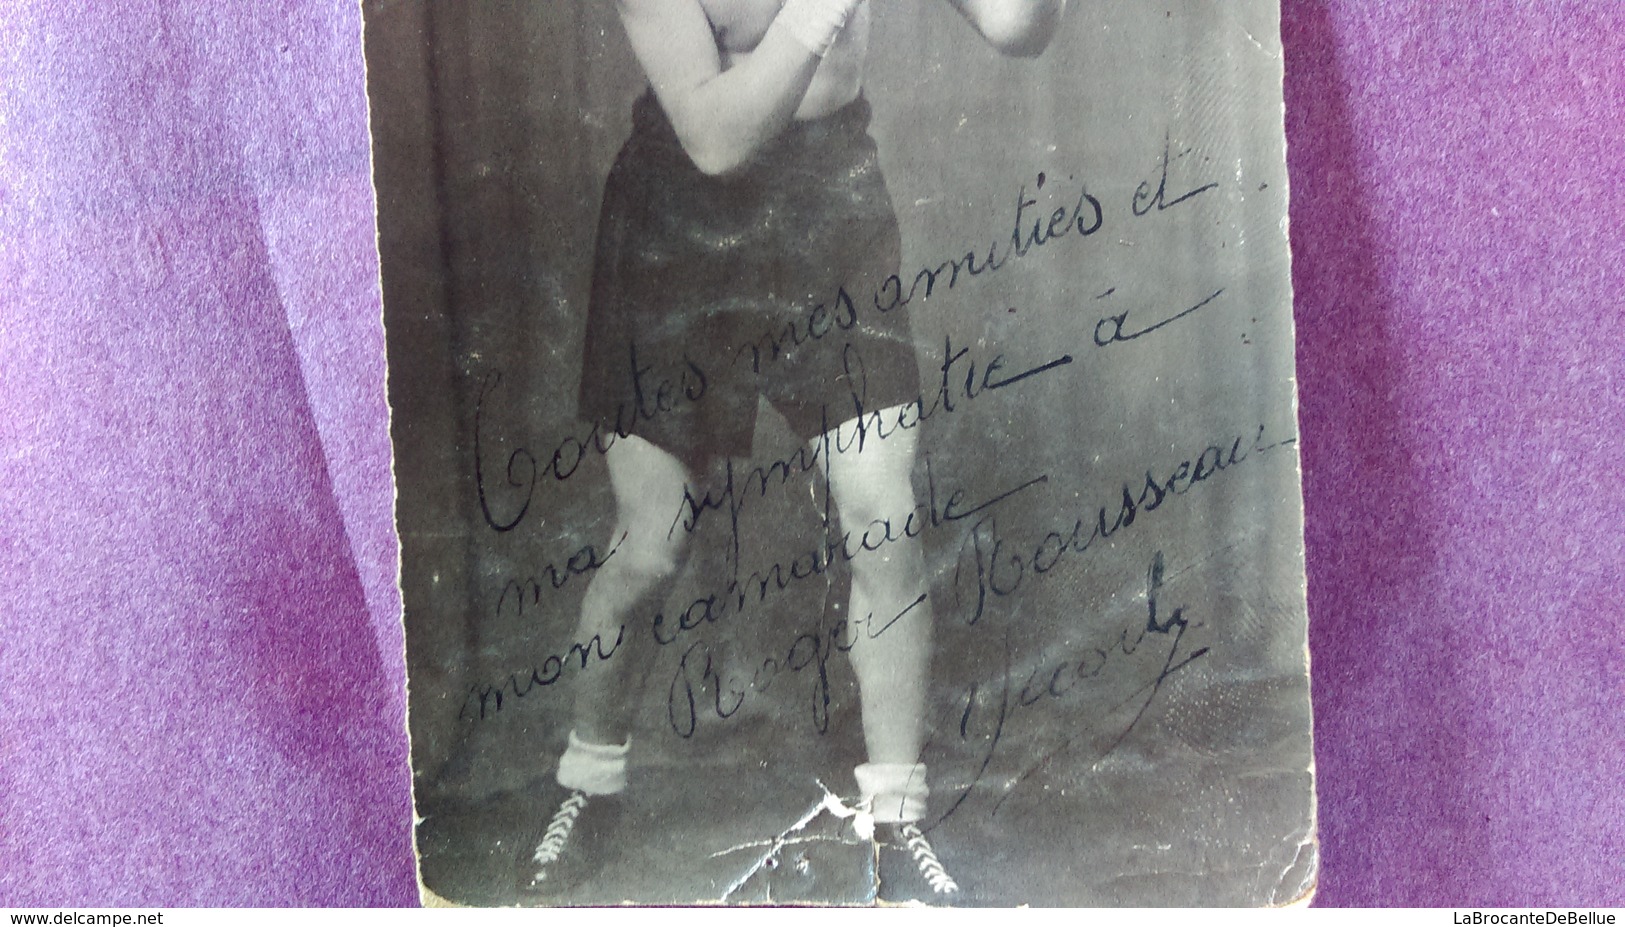 Toutes mes amitiés et
ma symphatie à
mon camarade
Roger Rousseau
www.delcampe.net
LaBrocanteDeBellue